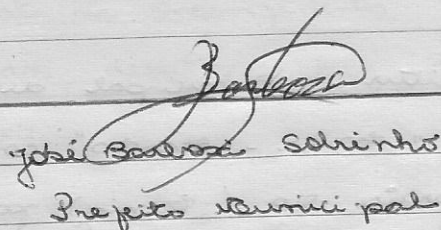 Barboza
José Barboza Sobrinho
Prefeito Municipal